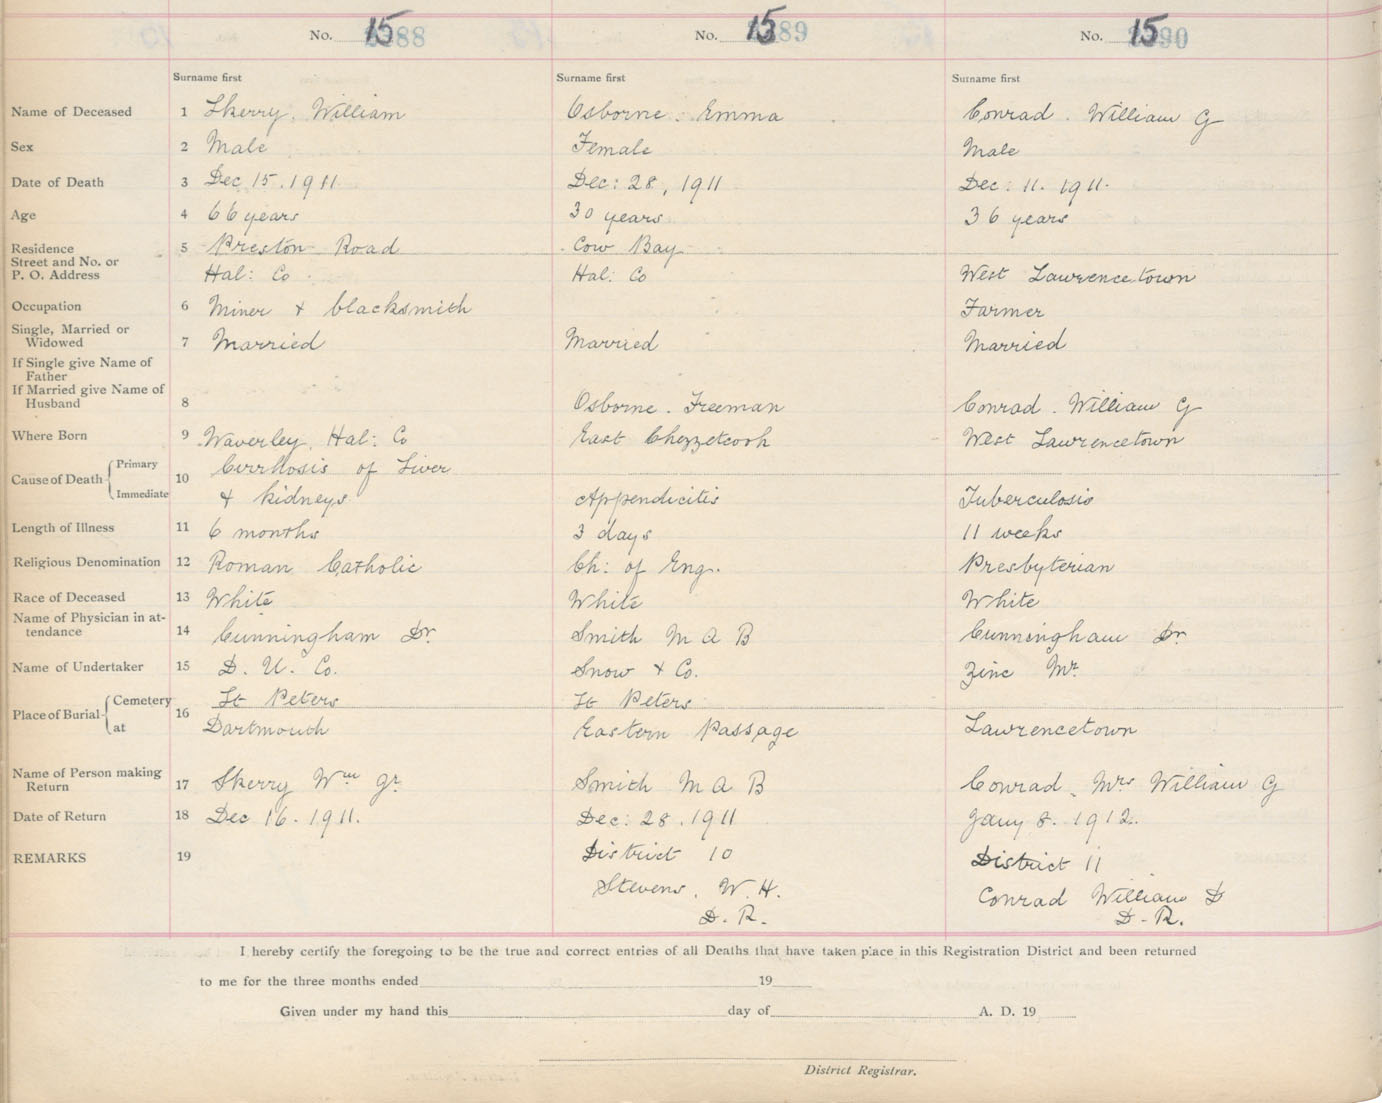 No. 15 88 No. 15 89 No. 15 90
Surname first Surname first Surname first
Name of Deceased 1 Skerry, William Osborne. Emma Conrad. William G
Sex 2 Male Female Male
Date of Death 3 Dec 15. 1911 Dec: 28, 1911 Dec: 11. 1911.
Age 4 66 years 30 years 36 years
Residence 5 Preston Road Cow Bay
Street and No. or
P. O. Address Hal: Co Hal: Co West Lawrencetown
Occupation 6 Miner & blacksmith Farmer
Single, Married or
Widowed 7 Married Married Married
If Single give Name of
Father
If Married give Name of
Husband 8 Osborne. Freeman Conrad. William G
Where Born 9 Waverley, Hal: Co East Chezzetcook West Lawrencetown
Cause of Death Primary 10 Cirrhosis of Liver
Immediate & kidneys Appendicitis Tuberculosis
Length of Illness 11 6 months 3 days 11 weeks
Religious Denomination 12 Roman Catholic Ch: of Eng. Presbyterian
Race of Deceased 13 White White White
Name of Physician in at-
tendance 14 Cunningham Dr. Smith M A B Cunningham Dr.
Name of Undertaker 15 D. U. Co. Snow & Co. Zinc Mr.
Place of Burial Cemetery 16 St Peters St Peters
at Dartmouth Eastern Passage Lawrencetown
Name of Person making
Return 17 Skerry Wm Jr. Smith M A B Conrad, Mrs William G
Date of Return 18 Dec 16. 1911. Dec: 28. 1911 Jany 8. 1912.
REMARKS 19 District 10 District 11
Stevens, W. H. Conrad William D
D. R. D. R.
I hereby certify the foregoing to be the true and correct entries of all Deaths that have taken place in this Registration District and been returned
to me for the three months ended 19
Given under my hand this day of A. D. 19
District Registrar.